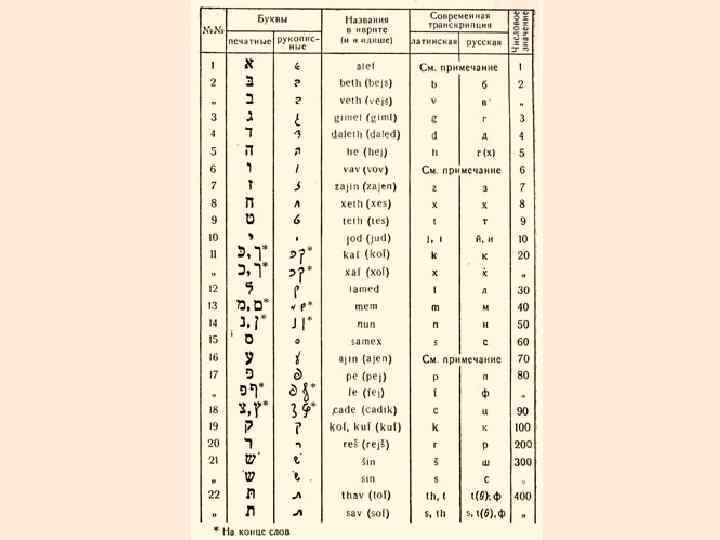 №№ Буквы Названия в иврите (и идише) Современная транскрипция Числовое значение
печатные рукописные латинская русская
1 א alef См. примечание 1
2 בּ beth (bejs) b б 2
„ ב veth (vejs) v в „
3 ג gimel (giml) g г 3
4 ד daleth (daled) d д 4
5 ה he (hej) h г (х) 5
6 ו vav (vov) См. примечание 6
7 ז zajin (zajen) z з 7
8 ח xeth (xes) x х 8
9 ט teth (tes) t т 9
10 י jod (jud) j, i й, и 10
11 כּ, ךּ* kaf (kof) k к 20
„ כ, ך* xaf (xof) x х „
12 ל lamed l л 30
13 מ, ם* mem m м 40
14 נ, ן* nun n н 50
15 ס samex s с 60
16 ע ajin (ajen) См. примечание 70
17 פ pe (pej) p п 80
„ פ ף* fe (fej) f ф „
18 צ, ץ* cade (cadik) c ц 90
19 ק kof, kuf (kuf) k к 100
20 ר reš (rejš) r р 200
21 שׁ šin š ш 300
„ שׂ sin s с „
22 ת thav (tof) th, t t(θ), ф 400
„ ת sav (sof) s, th s, t(θ), ф „
* На конце слов